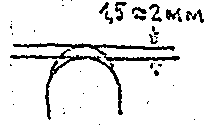 1,5≈2мм